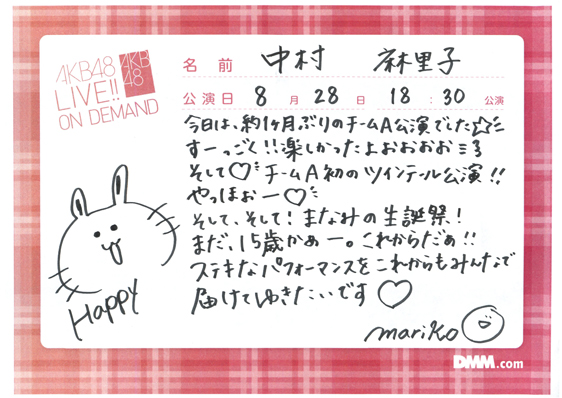 AKB48
LIVE!!
ON DEMAND
AKB
48
名前 中村 麻里子
公演日 8月28日 18:30公演
今日は、約1ヶ月ぶりのチームA公演でした☆
すーっごく!!楽しかったよおおおお
そして♡チームA初のツインテール公演!!
やっほぉー♡
そして、そして!まなみの生誕祭!
まだ、15歳かぁー。これからだぁ!!
ステキなパフォーマンスをこれからもみんなで
届けてゆきたいです♡
Happy
mariko
DMM.com